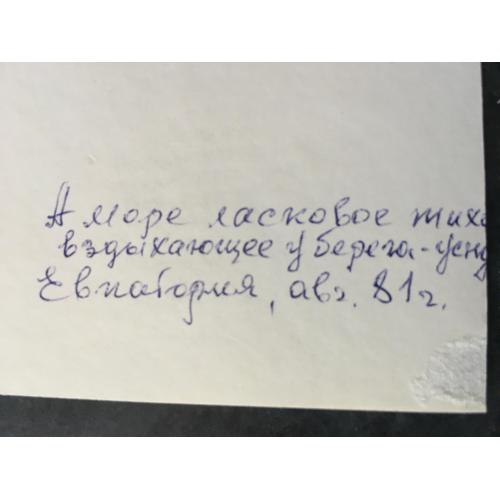 А море ласковое тихо
вздыхающее у берега-усну
Евпатория, авг. 81г.